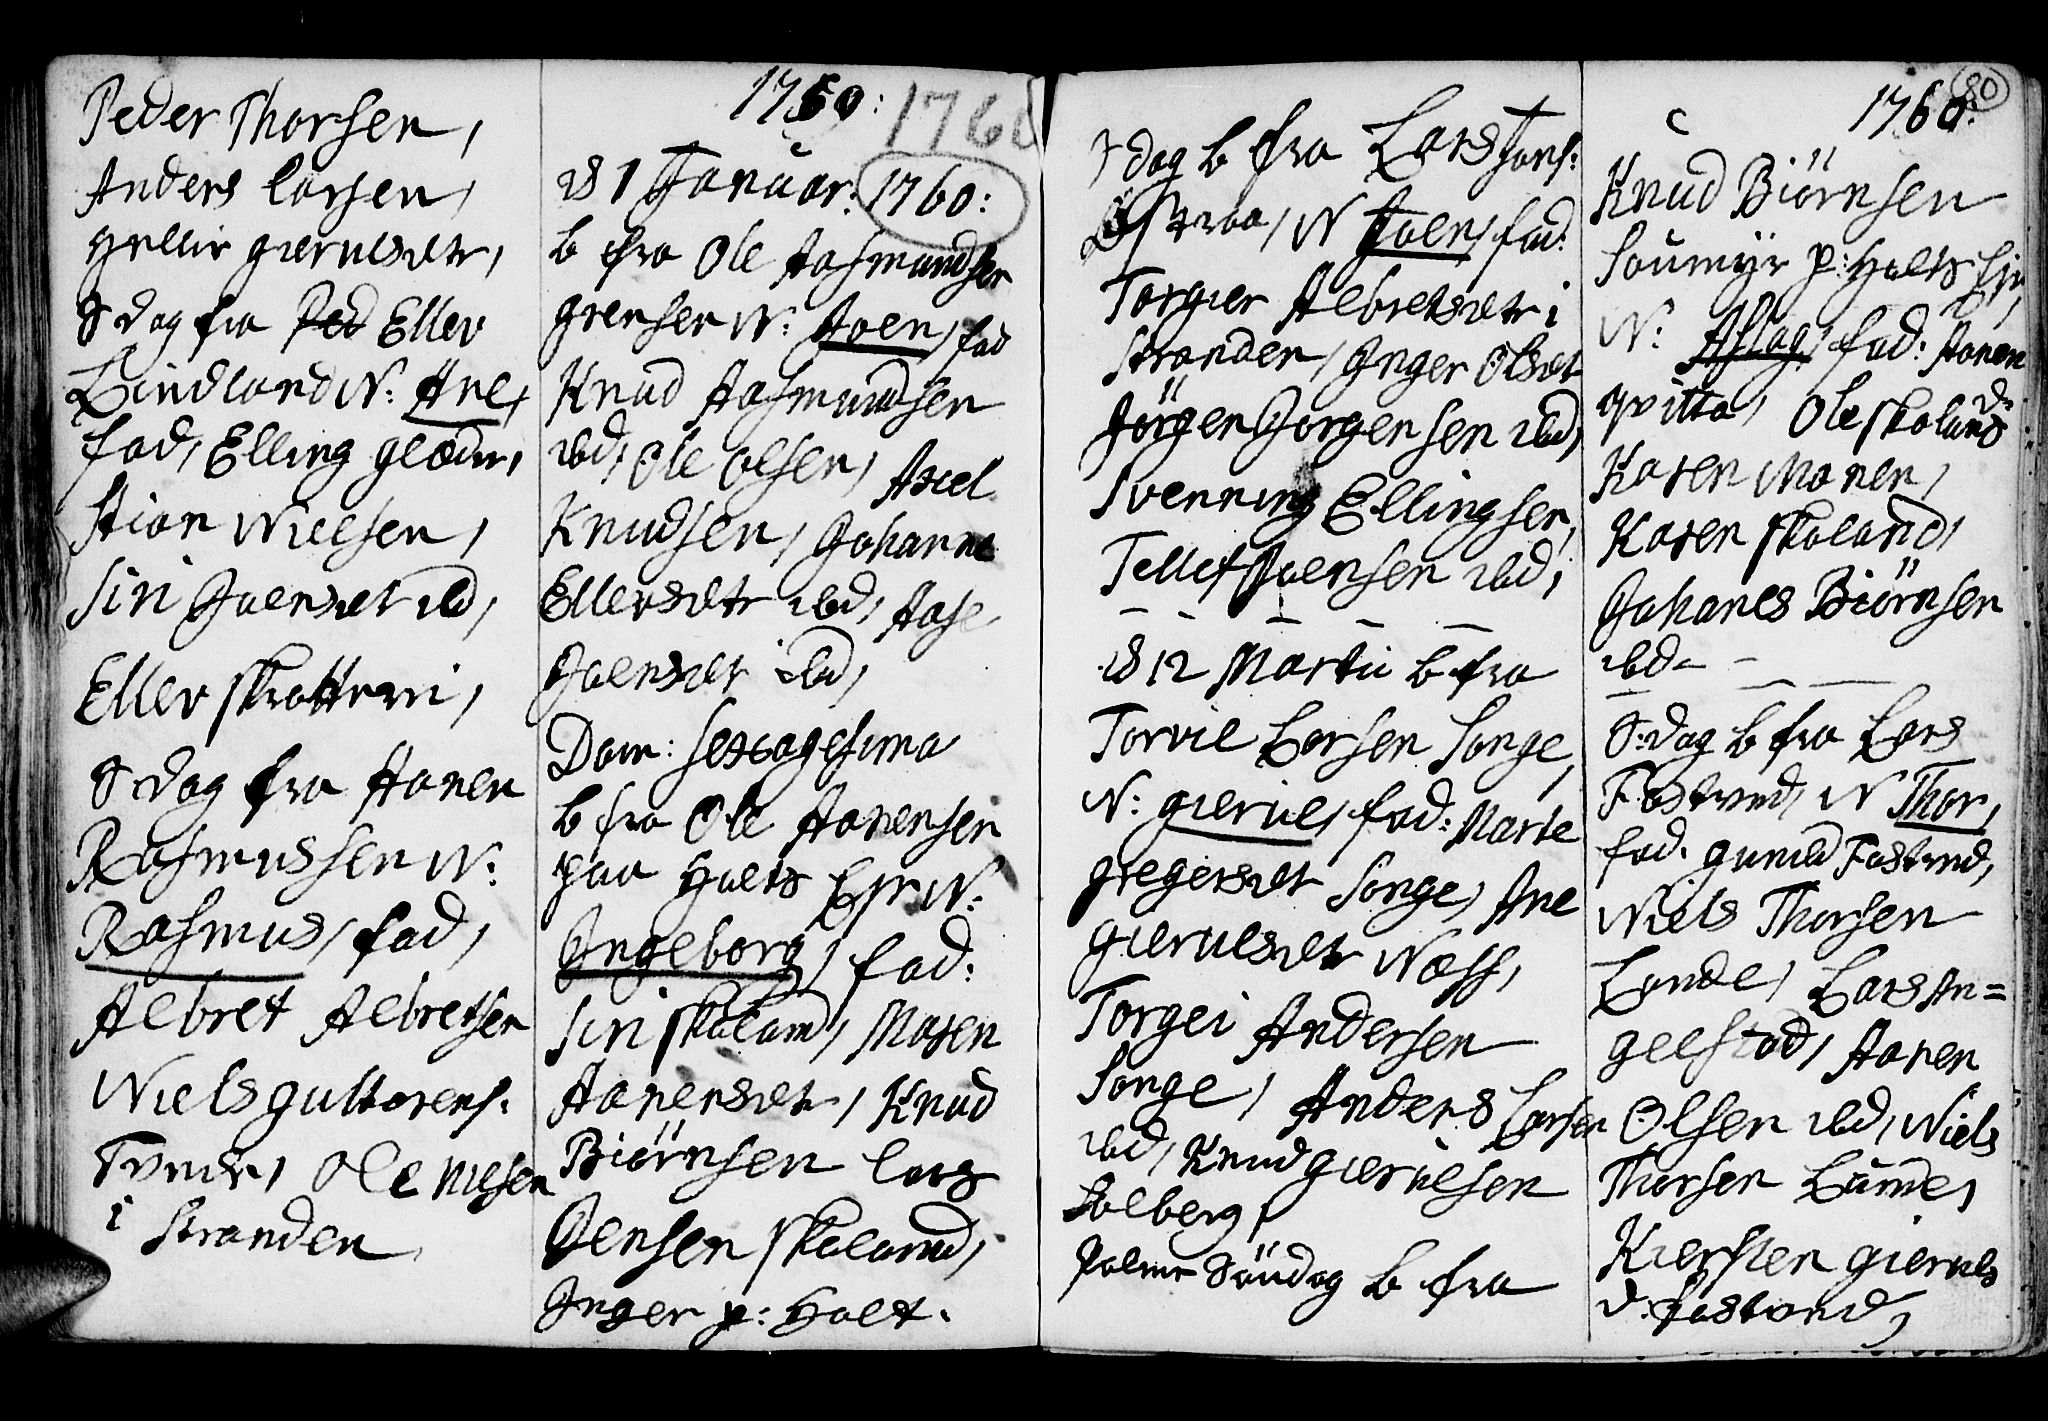 Peder Thorsen,
Anders Larsen,
giertsdtr,
S dag fra Ped Eller
Lindland N: Ane,
fad, Elling
Stian Nielsen,
Siri Joensdt ibd,
Eller
S dag fra Aanen
Rasmussen N:
Rasmus, fad,
Albret Albretsen
Niels guttorms:
Ole Nilsen
i Stranden
1760:
1760
d 1 Januar: 1760:
b fra Ole Aasmundsen
grensen N: Aoen, fad
Knud Aasmundsen
ibd, Ole Olsen, Axel
Knudsen, Johanne
Ellersdtr ibd, Aase
Joensdt ibd,
Dom: Sexagesima
b fra Ole Aanensen
paa Holts Eje N:
Ingeborg, fad:
Siri Skaland, Maren
Aanensdtr, Knud
Biörnsen Lars
Jensen Skaland,
Inger p: Holt.
80
1760:
S dag b fra Lars Jons:
N Joen, fad:
Torgier Albretsdtr i
Stranden, Inger Olsdt
Jörgen Jorgensen ibd,
Svenning Ellingsen,
Tellef Joensen ibd,
d 12 Martii b fra
Torvil Larsen Songe,
N: gierul, fad: Marte
gregersdt Songe, Ane
gierulsdtr Næss,
Torgei Andersen
Songe, Anders Larsen
ibd, Knud gierulsen
Solberg,
Palme Söndag b fra
Knud Biörnsen
Saumyr p: Holts Eje,
N: Aslag, fad: Aanen
qvitta, Ole Skaland
Karen Monen,
Karen Skaland,
Johanes Biörnsen
ibd
S: dag b fra Lars
Fostved, N Thor,
fad. gunild Fostved,
Niels Thorsen
Lunde, Lars An=
gelstad, Aanen
Olsen ibd, Niels
Thorsen Lunde,
Kiersten gieruls
d. fostvond,